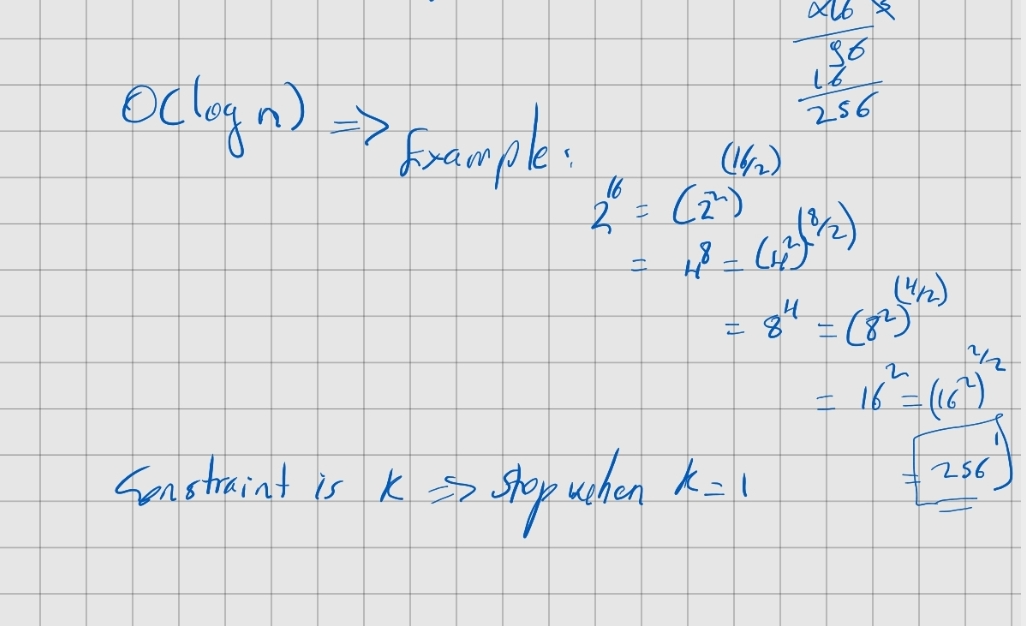 ×16
96
16
256
O(log n) => Example:
2^16 = (2^2)^(16/2)
= 4^8 = (4^2)^(8/2)
= 8^4 = (8^2)^(4/2)
= 16^2 = (16^2)^2/2
= 256^1
Constraint is k => stop when k = 1